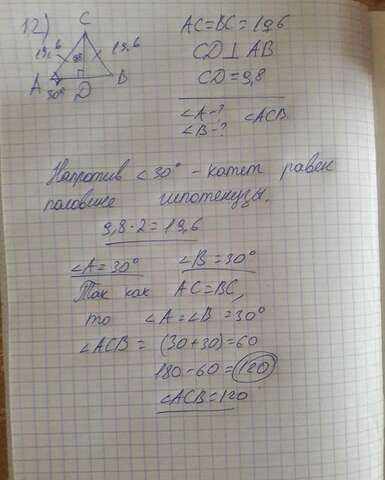 12)
C
19,6 19,6
9,8
A B
30° D
AC=BC=19,6
CD⊥AB
CD=9,8
∠A-? ∠ACB.
∠B-?
Напротив ∠30° - катет равен
половине гипотенузы.
9,8·2=19,6
∠A=30° ∠B=30°
Так как AC=BC,
то ∠A=∠B=30°
∠ACB = (30+30)=60
180-60=120
∠ACB=120